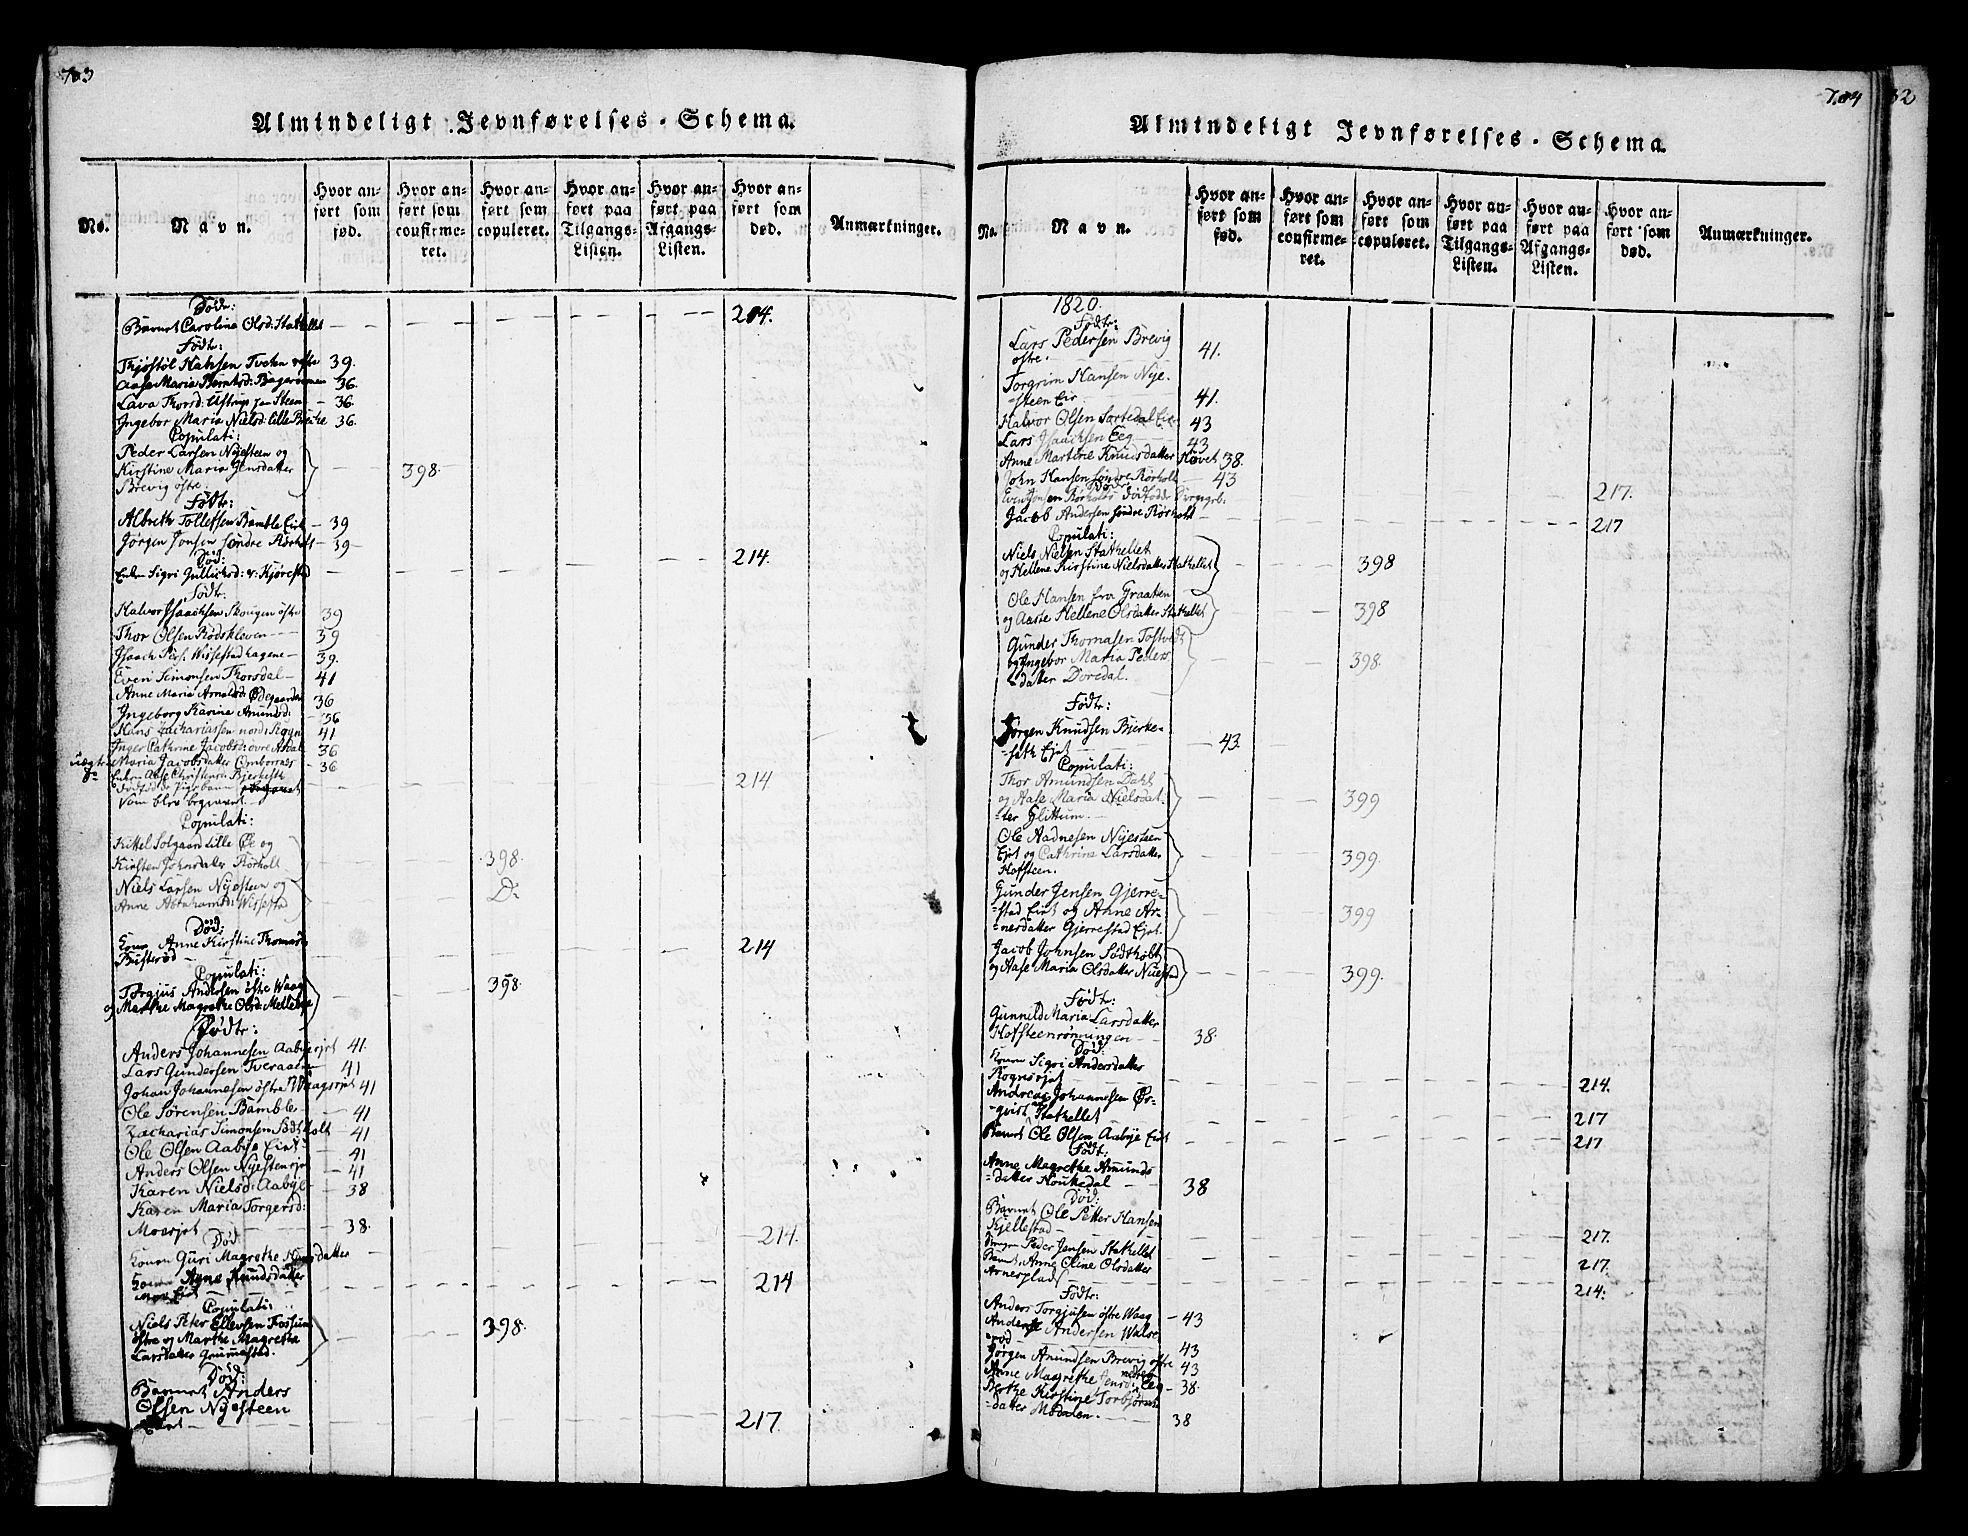 703
Almindeligt Jevnførelses-Schema.
No.
Navn.
Hvor an-
ført som
fød.
Hvor an-
ført som
confirme-
ret.
Hvor an-
ført som
copuleret.
Hvor an-
ført paa
Tilgangs-
Listen.
Hvor an-
ført paa
Afgangs-
Listen.
Hvor an-
ført som
død.
Anmærkninger.
Død:
Barnet Carolina Olsd: Stathellet 214.
Fødtr:
Thjøstøl Hansen Tveten østre 39.
Aase Maria Berntsd: 36.
Lava Thorsd: Steen 36.
Ingebor Maria Nielsd: Lille 36.
Copulati:
Peder Larsen Nyesteen og
Kirstine Maria Jensdatter 398.
Brevig østre.
Fødtr:
Albreth Tollefsen Bamble Eiet 39
Jørgen Jonsen søndre Rørholt 39
Død:
Enken Sigri Gullichsd: v: Kjørestad 214.
Fødtr:
Halvor Isaachsen Skougen østre 39
Thor Olsen Rødskleven 39
Isaach Pers: Wissestadhagene 39.
Even Simonsen Thorsdal 41
Anne Maria Arnoldsd: Ødegaarden 36
Ingeborg Karine Amundsd: 36
Hans Zachariassen nord: Rogn 41
Inger Cathrine Jacobsd: øvre Asdal 36
Maria Jacobsdatter Ombornes 36
Enken Aase Christensd: Bjerkeseth
Dødfød Pigebarn
som blev begravet. 214
Copulati:
Kittel Solgaard Lille Øe og
Kirsten Johnsdatter Rørholt 398.
Niels Larsen Nyesteen og
Anne Abrahamsd: Wissestad Do
Død:
Konen Anne Kirstine Thomasd:
214
Copulati:
Torgius Andersen østre Waag
og Marthe Magrethe Olsd: 398.
Fødtr:
Anders Johannesen Aabye ejet 41.
Lars Gundersen Tveraaen 41
Johan Johannesen østre Waagsejet 41
Ole Sørensen Bamble 41
Zacharias Simonsen Sødtholt 41
Ole Olsen Aabye Eiet 41
Anders Olsen Nyesteen ejet 41
Karen Nielsd: Aabye 38
Karen Maria Torgersd:
Moeejet 38.
Død
Konen Guri Magrethe 214.
Konen Anne Knudsdatter
Moe Eiet 214
Copulati:
Niels Peter Ellevsen Fossum
østre og Marthe Magrethe 398.
Larsdatter Grummestad.
Død:
Barnet Anders
Olsen Nyesteen
Eiet 217.
704
32
Almindeligt Jevnførelses-Schema.
No.
Navn.
Hvor an-
ført som
fød.
Hvor an-
ført som
confirme-
ret.
Hvor an-
ført som
copuleret.
Hvor an-
ført paa
Tilgangs-
Listen.
Hvor an-
ført paa
Afgangs-
Listen.
Hvor an-
ført som
død.
Anmærkninger.
1820.
Fødtr:
Lars Pedersen Brevig
østre. 41.
Torgrim Hansen Nye-
steen Eie. 41.
Halvor Olsen Sortedal Eie 43
Lars Isaachsen Eeg 43
Anne Martine Knudsdatter Hovet 38.
John Hansen søndre Rørholt 43
Død:
Even Jensen Rørholts dødfødde Drengeb. 217.
Jacob Andersen søndre Rørholt 217
Copulati:
Niels Nielsen Stathellet
og Hellene Kirstine Nielsdatter Stathellet 398
Ole Hansen fra Graaten
og Aaste Hellene Olsdatter Stathellet 398
Gunder Thomasen Tostvedt
og Ingebor Maria Peders 398.
datter Doredal.
Fødtr:
Jørgen Knudsen Bjerke-
seth Ejet 43.
Copulati:
Thor Amundsen Dahl
og Aase Maria Nielsdat- 399
ter Glittum.
Ole Aadnesen Nyesteen
Ejet og Cathrine Larsdatter 399.
Hofsteen.
Gunder Jensen Gjerre-
stad Eiet og Anne Ar- 399
nesdatter Gjerrestad Ejet.
Jacob Johnsen Sødtholt
og Aase Maria Olsdatter 399.
Født:
Gunnild Maria Larsdatter
Hofsteenrønningen 38.
Død:
Konen Sigri Andersdatter
Rognsejet 214.
Andreas Johannesen Ør-
qvist Stathellet 217
Barnet Ole Olsen Aabye Eiet 217
Født:
Anne Magrethe Amunds
datter Houkedal 38
Død:
Barnet Ole Petter Hansen
Kjellestad 217.
Peder Jensen Stathellet 217.
Barnet Anne Oline Olsdatter
Arnesplads 214.
Fødtr:
Anders Torgjusen østre Waag 43
Anders Andersen Walse-
rød 43
Jørgen Amundsen Brevig østre 43
Anne Magrethe Jensd: nedre Eeg 38.
Berthe Kirstine Torbjørns
datter Modalen. 38